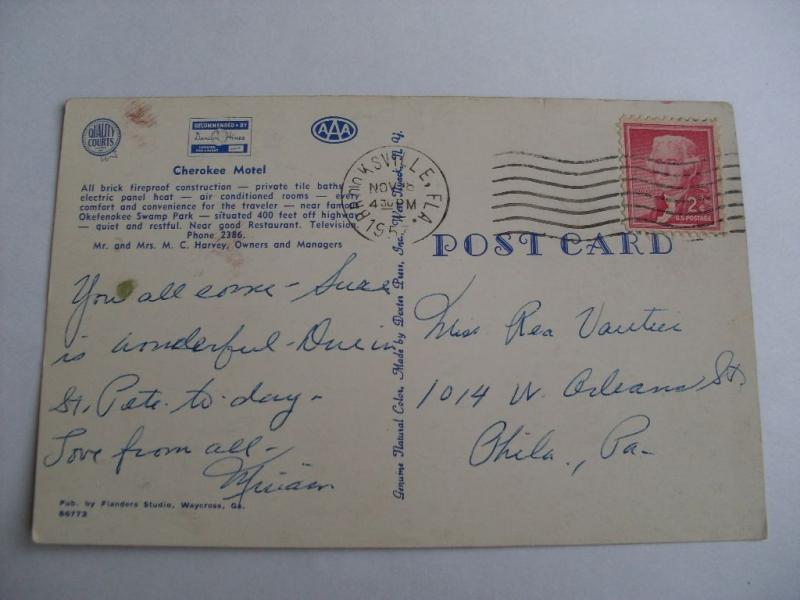 QUALITY
COURTS
RECOMMENDED · BY
Duncan Hines
AAA
Cherokee Motel
All brick fireproof construction — private tile baths
electric panel heat — air conditioned rooms — every
comfort and convenience for the traveler — near famous
Okefenokee Swamp Park — situated 400 feet off highway
— quiet and restful. Near good Restaurant. Television
Phone 2386.
Mr. and Mrs. M. C. Harvey, Owners and Managers
You all come - Sure
is wonderful - Due in
St. Pete to-day -
Love from all -
Miriam
Pub. by Flanders Studio, Waycross, Ga.
86773
Genuine Natural Color, Made by Dexter Press, Inc., West Nyack, N. Y.
BROOKSVILLE, FLA.
NOV
4 30 PM
195
2¢
U.S. POSTAGE
POST CARD
Miss Rea Vautier
1014 W. Orleans St.
Phila., Pa-